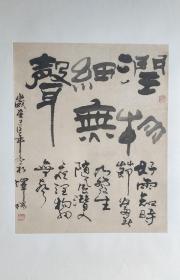 潤物
細無
聲
好雨知時
節當春
乃發生
隨風潛入
夜潤物細
無聲